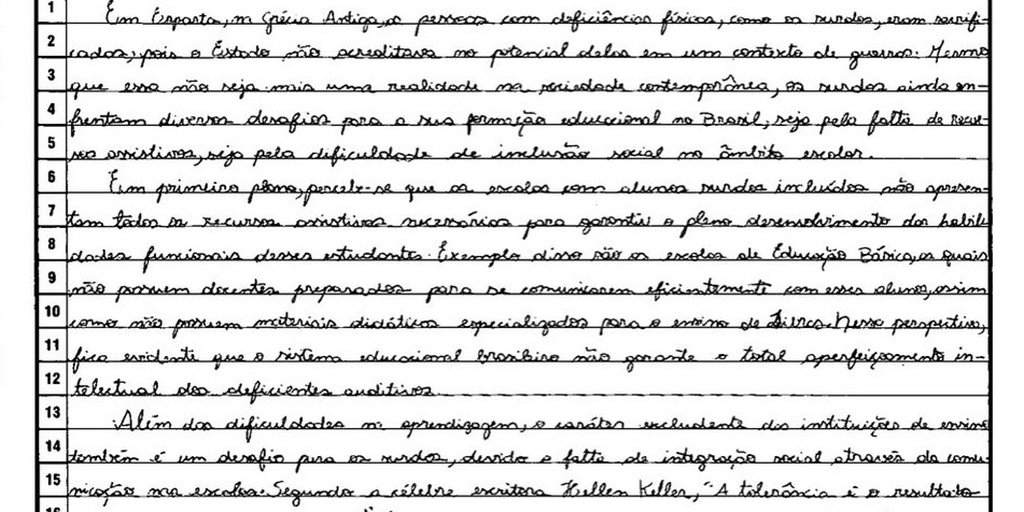 1 Em Esparta, na Grécia Antiga, as pessoas com deficiências físicas, como os surdos, eram sacrifi-
2 cadas, pois o Estado não acreditava no potencial delas em um contexto de guerras. Mesmo
3 que essa não seja mais uma realidade na sociedade contemporânea, os surdos ainda en-
4 frentam diversos desafios para a sua formação educacional no Brasil, seja pela falta de recur-
5 sos assistivos, seja pela dificuldade de inclusão social no âmbito escolar.
6 Em primeiro plano, percebe-se que as escolas com alunos surdos incluídos não apresen-
7 tam todos os recursos assistivos necessários para garantir o pleno desenvolvimento das habili-
8 dades funcionais desses estudantes. Exemplo disso são as escolas de Educação Básica, as quais
9 não possuem docentes preparados para se comunicarem eficientemente com esses alunos, assim
10 como não possuem materiais didáticos especializados para o ensino de Libras. Nessa perspectiva,
11 fica evidente que o sistema educacional brasileiro não garante o total aperfeiçoamento in-
12 telectual dos deficientes auditivos.
13 Além das dificuldades na aprendizagem, o caráter excludente das instituições de ensino
14 também é um desafio para os surdos, devido a falta de integração social através da comu-
15 nicação nas escolas. Segundo a célebre escritora Hellen Keller, "A tolerância é o resultado
16